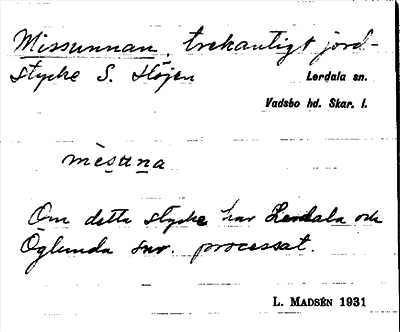 Missunnan, trekantigt jord-
stycke S. Höjen
Lerdala sn.
Vadsbo hd. Skar. l.
mèsuna
Om detta stycke har Lerdala och
Öglunda snr. processat.
L. MADSÉN 1931